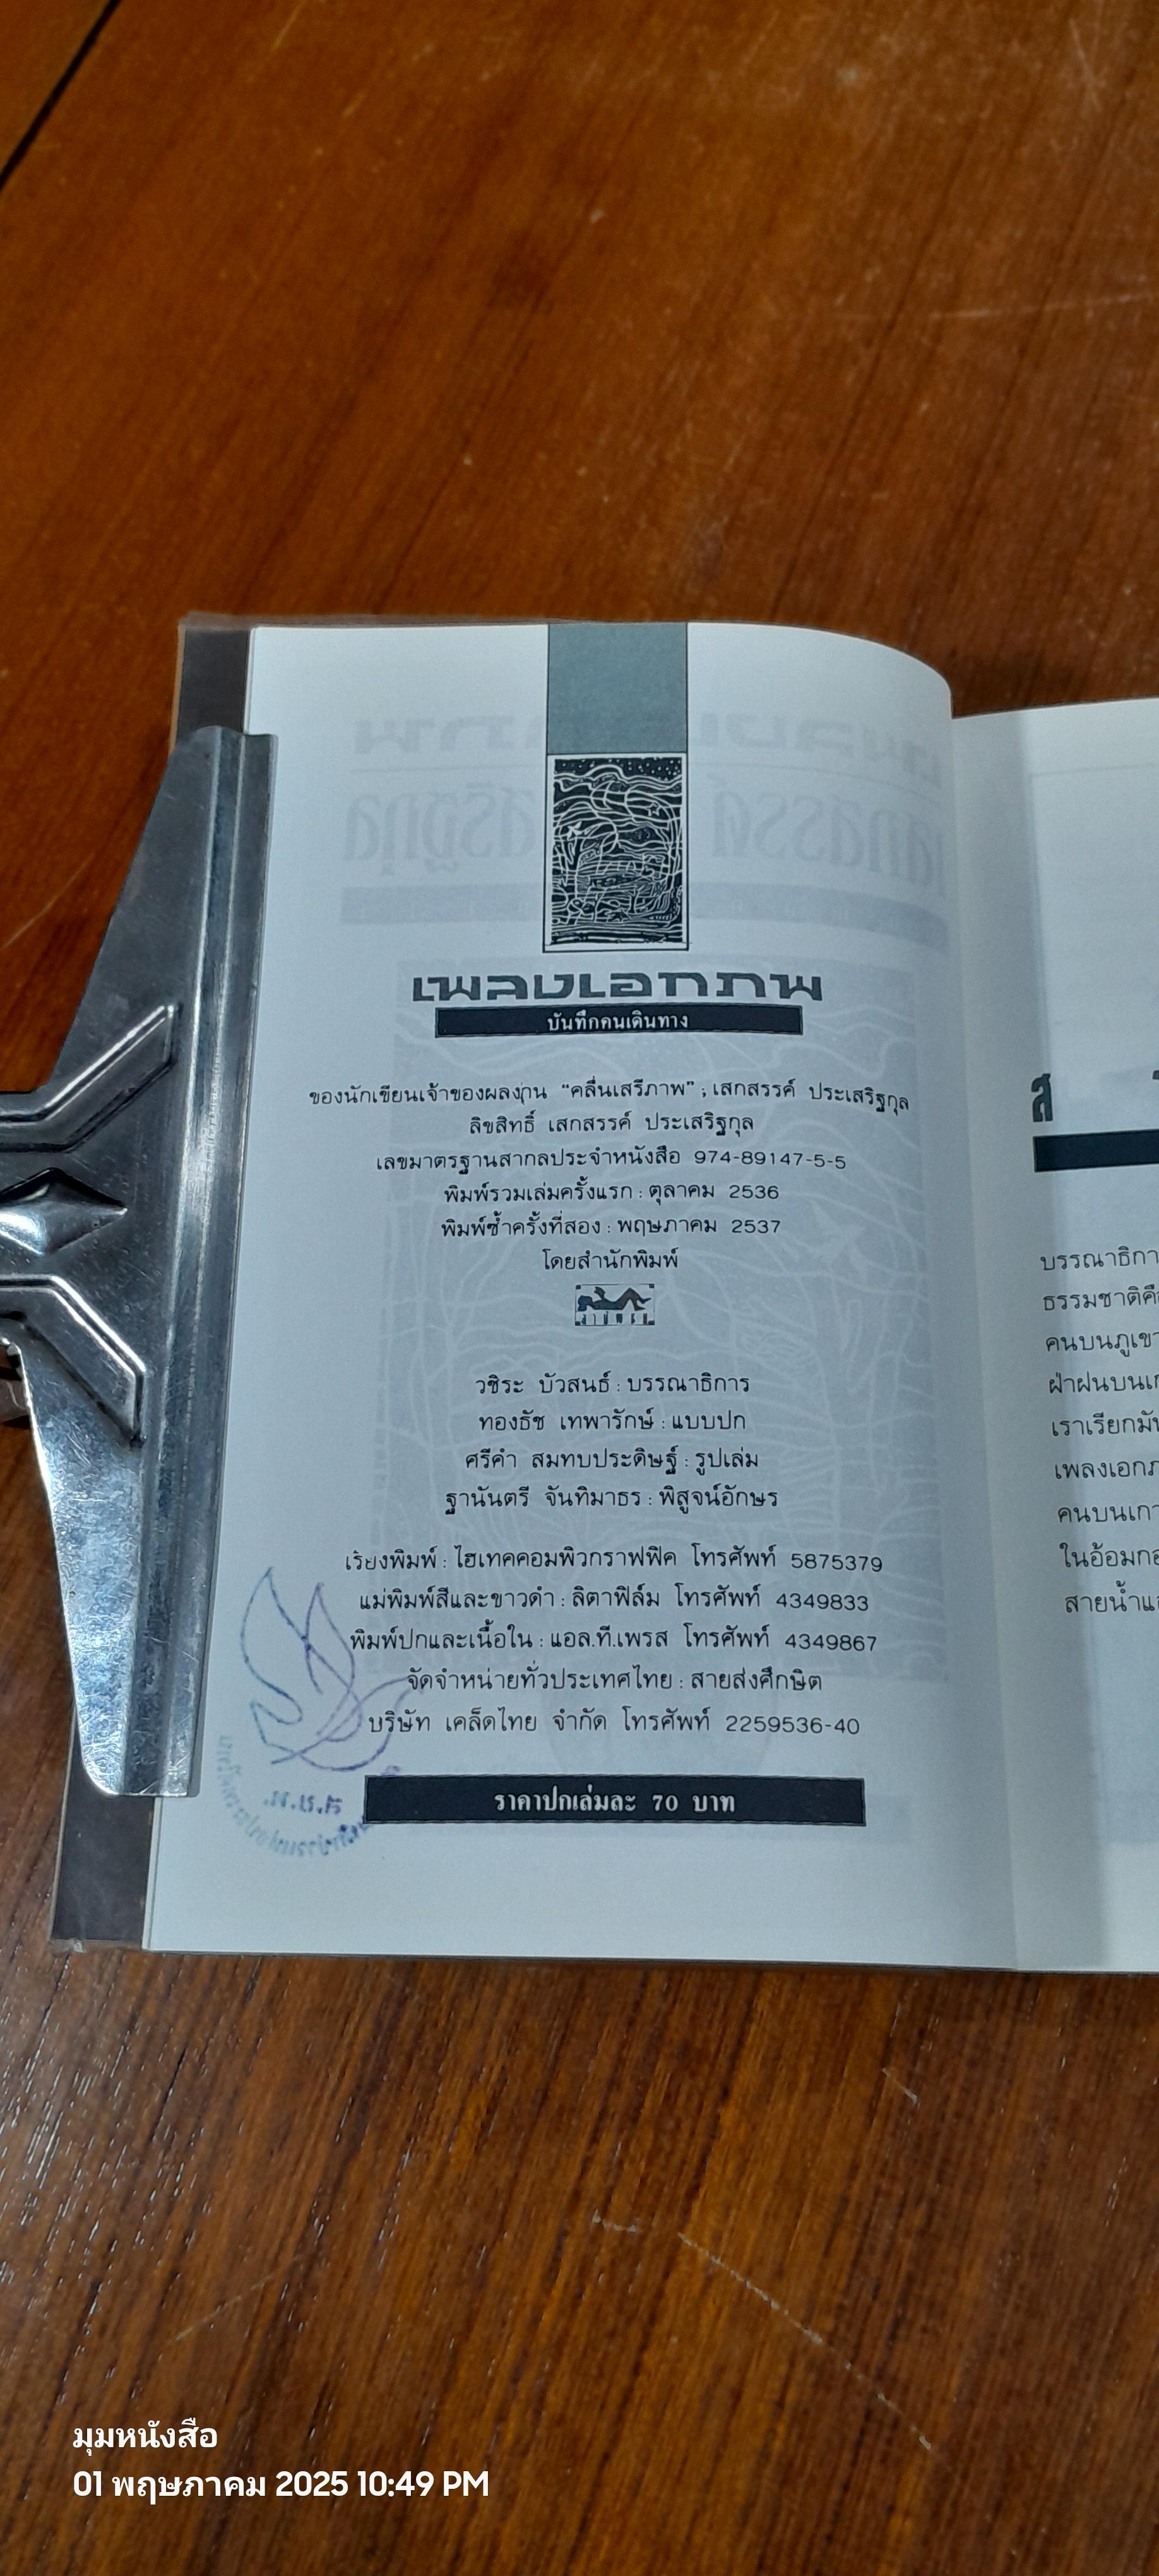 เพลงเอกภพ
บันทึกคนเดินทาง
ของนักเขียนเจ้าของผลงาน "คลื่นเสรีภาพ" ; เสกสรรค์ ประเสริฐกุล
ลิขสิทธิ์ เสกสรรค์ ประเสริฐกุล
เลขมาตรฐานสากลประจำหนังสือ 974-89147-5-5
พิมพ์รวมเล่มครั้งแรก : ตุลาคม 2536
พิมพ์ซ้ำครั้งที่สอง : พฤษภาคม 2537
โดยสำนักพิมพ์
วชิระ บัวสนธ์ : บรรณาธิการ
ทองธัช เทพารักษ์ : แบบปก
ศรีคำ สมทบประดิษฐ์ : รูปเล่ม
ฐานันตรี จันทิมาธร : พิสูจน์อักษร
เรียงพิมพ์ : ไฮเทคคอมพิวกราฟฟิค โทรศัพท์ 5875379
แม่พิมพ์สีและขาวดำ : ลิตาฟิล์ม โทรศัพท์ 4349833
พิมพ์ปกและเนื้อใน : แอล.ที.เพรส โทรศัพท์ 4349867
จัดจำหน่ายทั่วประเทศไทย : สายส่งศึกษิต
บริษัท เคล็ดไทย จำกัด โทรศัพท์ 2259536-40
ราคาปกเล่มละ 70 บาท
ส
บรรณาธิกา
ธรรมชาติคื
คนบนภูเขา
ฝ่าฝนบนเก
เราเรียกมั
เพลงเอกภ
คนบนเกา
ในอ้อมกอ
สายน้ำแ
มุมหนังสือ
01 พฤษภาคม 2025 10:49 PM